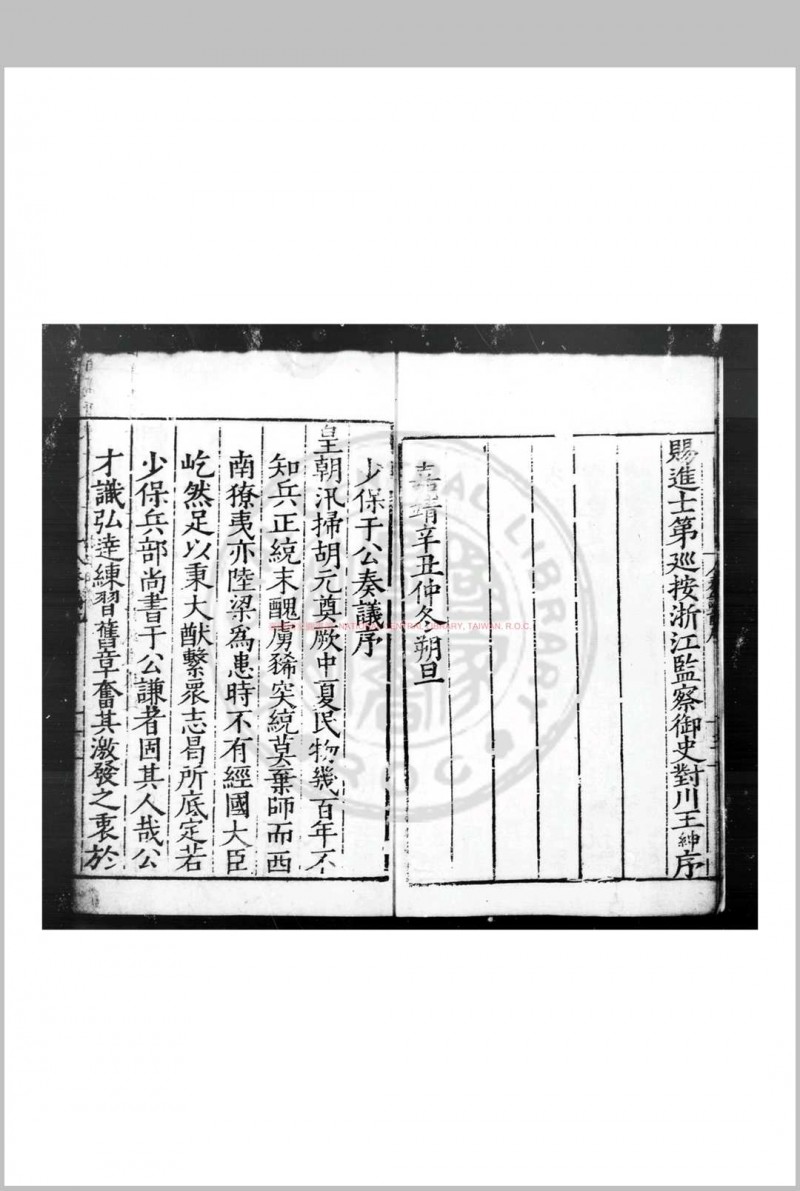 賜進士第廵按浙江監察御史對川王紳序
嘉靖辛丑仲冬朔旦
少保于公奏議序
皇朝汛掃胡元奠厥中夏民物幾百年不
知兵正統末醜虜豨突統莫棄師而西
南獠夷亦陸梁為患時不有經國大臣
屹然足以秉大猷繫眾志曷所底定若
少保兵部尚書于公謙者固其人哉公
才識弘達練習舊章奮其激發之衷於
NATIONAL CENTRAL LIBRARY, TAIWAN, R.O.C.